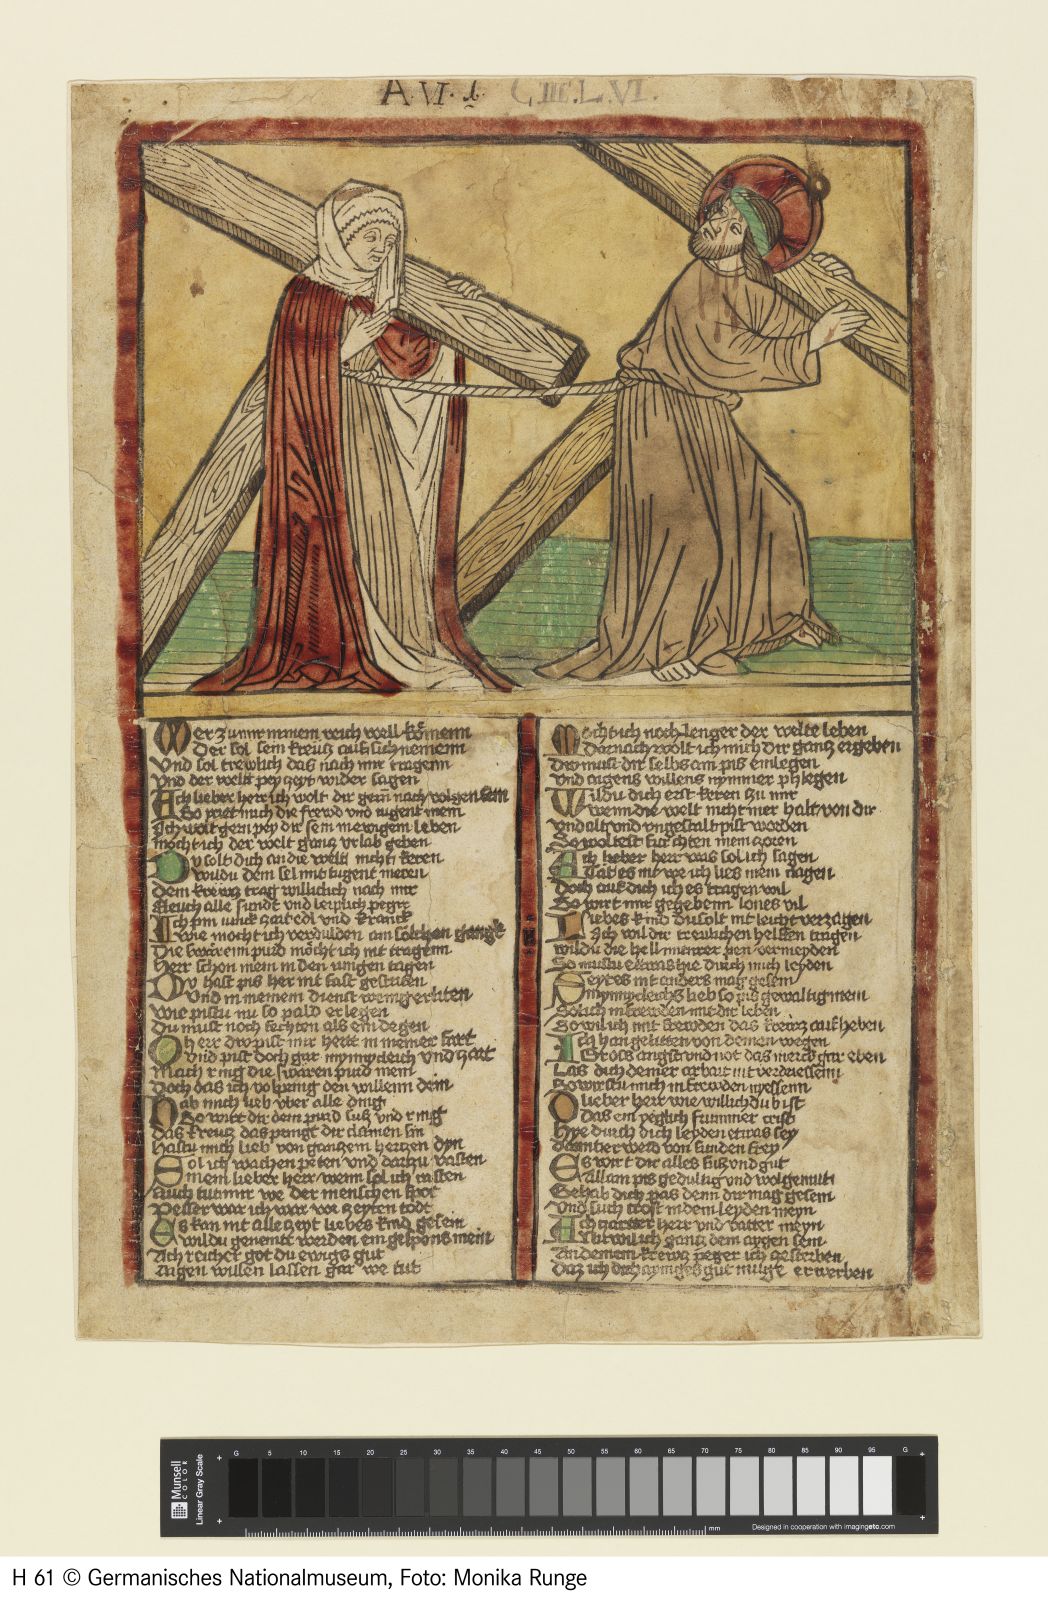 A.VI.
C.III.L.VI.
Wer zu mir in mein reich well kömenn
Der sol sein kreutz auff sich nemenn
Vnd sol trewlich das nach mir tragenn
Vnd der welt pey zeyt wider sagen
Ach lieber herr ich wolt dir gern nach volgen sein
So yrret mich die frewd und iugent mein
Ich wolt gern pey dir sein in ewigem leben
möcht ich der welt gantz vrlab geben
Du solt dich an die welt nicht keren
wildu dein sel mit tugent meren
Dein krewtz trag willichlich nach mir
fleuch alle sundt vnd leiplich pegir
Ich pin iunck zart edl vnd kranck
wie mocht ich verdulden am solchen gangk
Die swärenn purd möcht ich nit tragenn
Herr schon mein in den iungen tagen
Du hast pis her nit fast gestriten
Vnd in meinem dienst wenig erliten
wie pistu nu so pald erlegen
Du must noch fechten als ein degen
O herr dw pist mir hert in meiner fart
Vnd pist doch gar mynnycleich vnd zart
Mach ring die swären purd mein
Doch das ich volpring den willenn dein
Hab mich lieb vber alle ding
So wirt dir dein purd suß vnd ring
Das kreutz das pringt dir clainen pin
Hastu mich lieb von gantzem hertzen dyn
Sol ich wachen peten vnd dartzu vasten
mein lieber herr wenn sol ich rasten
Auch tut mir we der menschen spot
Pesser wär ich wär vor zeyten todt
Es kan nit alle zeyt liebes kind gesein
wildu genennt werden ein gespons mein
Ach reicher got du ewigs gut
Aigen willen lassen gar we tut
Möcht ich noch lenger der welte leben
Darnach wölt ich mich dir gantz ergeben
Dw must dir selbs ain pis einlegen
Vnd aigens willens nymmer phlegen
Wildu dich erst keren zu mir
wenn die welt nicht mer halt von dir
Vnd alt vnd vngestalt pist worden
So woltest furchten mein zoren
Ach lieber herr was sol ich sagen
Tät es nit we ich lies mein clagen
Doch auff dich ich es tragen wil
So wirt mir gegebenn lones vil
Liebes kind du solt nit leicht verzagen
Ich wil dir trewlichen helffen tragen
wildu die hell marter pein vermeyden
So mustu etwas hie durch mich leyden
Seyt es nit anders mag gesein
O mynnycleichs lieb so pis gewaltig mein
Sol ich in frewden mit dir leben
So wil ich mit frewden das krewtz auff heben
Ich han gelitten von deinen wegen
Gross angst vnd not das merck gar eben
Las dich deiner arbait nit verdriessenn
So wirstu mich in frewden niessenn
O lieber herr wie willich du bist
Das ein yeglich frummer crist
Hye durch dich leyden etwas sey
damit er werd von sunden frey
Es wirt dir alles suß vnd gut
Allain pis gedultig vnd wolgemut
Gehab dich pas denn dir mag gesein
Vnd such trost in dem leyden meyn
Ach zartter herr vnd vatter meyn
Nu wil ich gantz dein aygen sein
An deinem krewtz peger ich gesterben
Daz ich dich ayniges gut müge erwerben
Munsell
COLOR
Linear Gray Scale
G 5 10 15 20 25 30 35 40 45 50 55 60 65 70 75 80 85 90 95 G
mm
Designed in cooperation with imagingetc.com
H 61 © Germanisches Nationalmuseum, Foto: Monika Runge